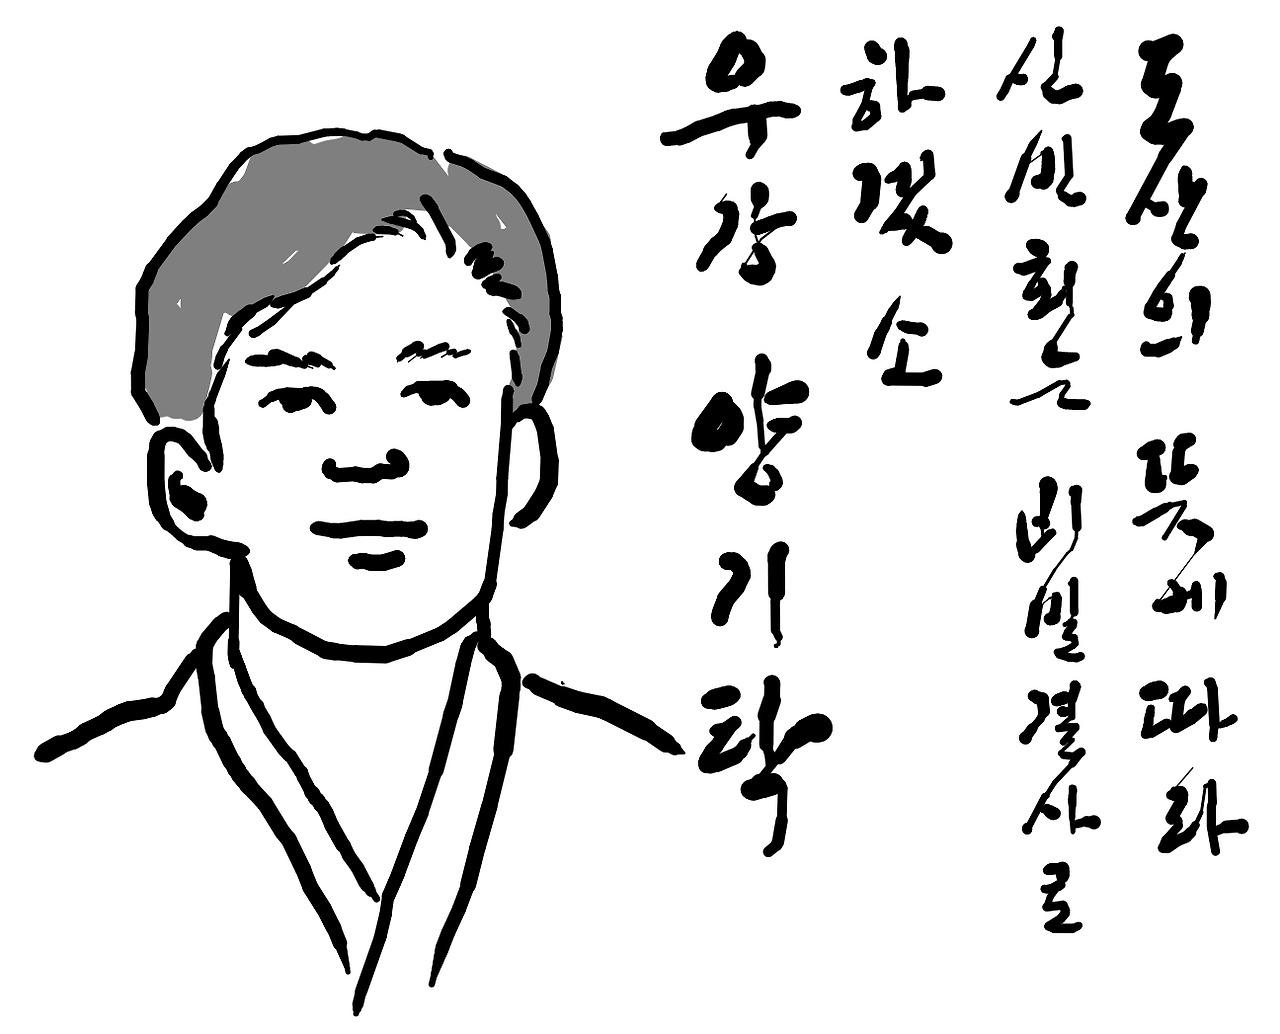 도산의 뜻에 따라
신민회는 비밀결사로
하겠소
우강 양기탁